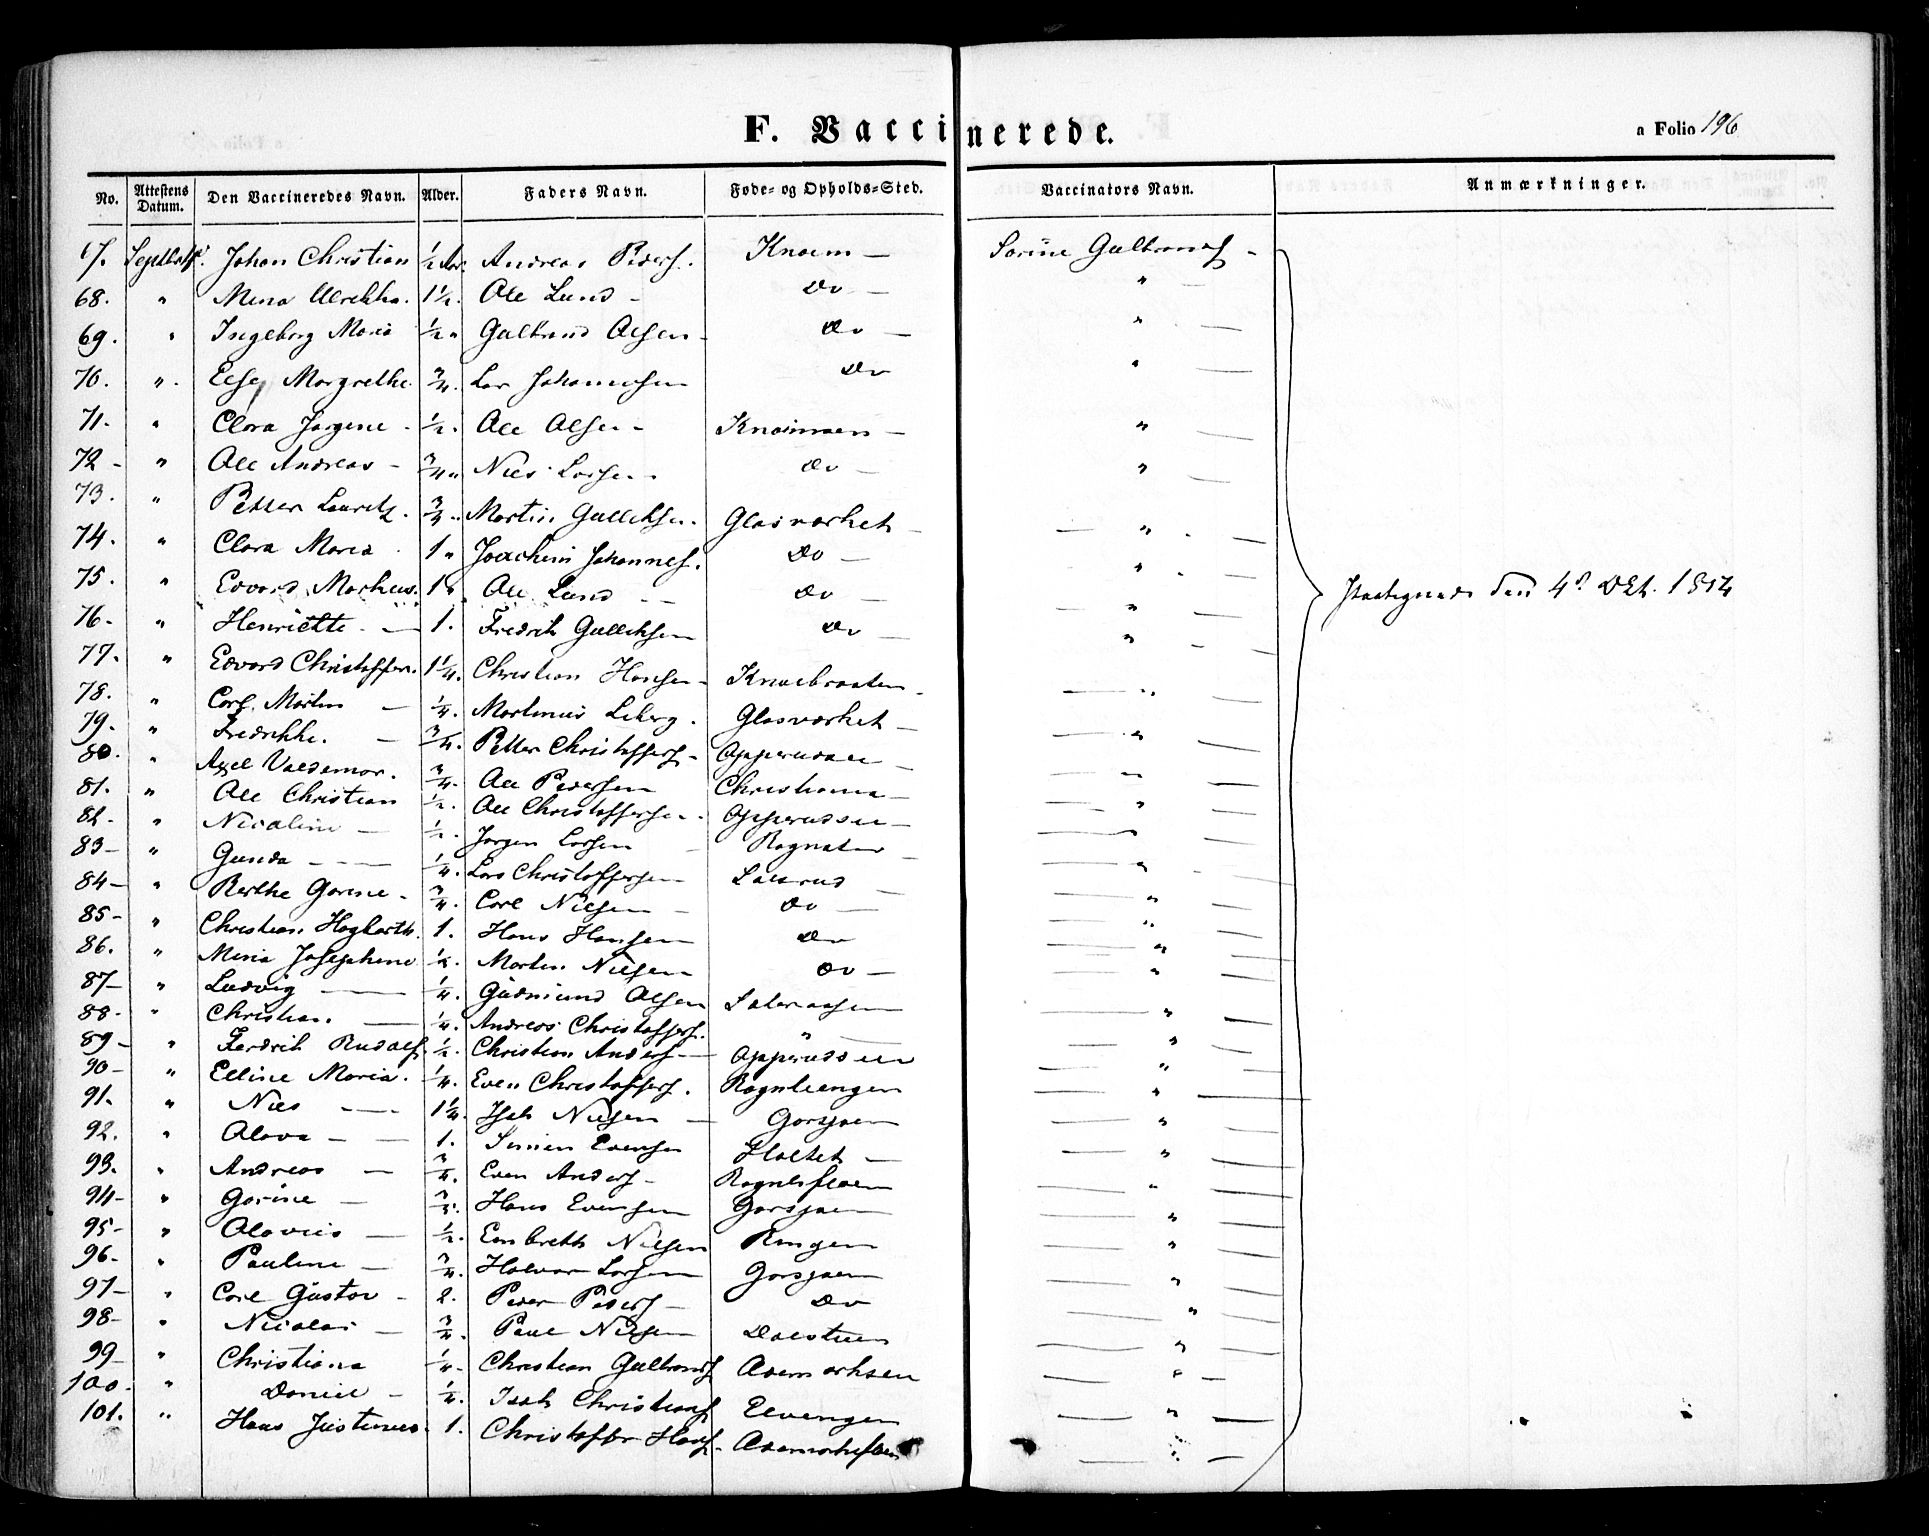 F. Vaccinerede.
a Folio 196
No. Attestens Datum. Den Vaccineredes Navn. Alder. Faders Navn. Føde- og Opholds-Sted. Vaccinators Navn. Anmærkninger.
67. Johan Christian ½ Aar Andreas Peders. Knaem — Sorine Gulbrands -
68. " Mina Ulrekka. 1½. Ole Lund - Do - "
69. " Ingeborg Maria ½ " Gulbrand Olsen - Do - "
70. " Else Margrethe ¾. Lar Johannesen Do "
71. " Clara Jørgine - ½. Ole Olsen - Knaimoen - "
72 - " Ole Andreas - ¾ " Niels Larsen Do - "
73. " Petter Lauritz. ¾ " Martin Gulliksen. Glasværket - "
74. " Clara Maria 1 " Joachim Johannes. Do - "
75. " Edvard Markus. 1 " Ole Lund - Do - "
76. " Henriette. - 1. Fredrik Gulliksen Do - "
77. " Edvard Christoffer. 1¼. Christian Hansen - Knaebraaten - "
78. " Carl Martin - ¼. Martinius Leberg. Glasværket - "
79. " Fredrikke. - ¾. Petter Christoffers - Opperudsen - "
80. " Axel Valdemar. ¾. Ole Pedersen Christiania - "
81. " Ole Christian ½. Ole Christoffersen - Opperudsen - "
82. " Nicoline - ½. Jørgen Larsen - "
83 - " Gunda - - - ¼. Lars Christoffersen - "
84 - " Berthe Gorine - ¾. Carl Nielsen - Do - "
85 - " Christian 1. Hans Hansen Do "
86. " Mina Josephine Morten Nielsen Do - "
87 - " Ludvig - ¼. Gudmund Olsen "
88 - " Christian. - ¼. Andreas Christoffers. " - "
89 - " Ferdrik Rudolf. ½. Christian Anders - Opperudsen "
90 - " Elline Maria. ¼. Even Christoffers. "
91. " Niels - 1¼. Isak Nielsen - "
92. " Olava - - 1. Simen Evensen Holtet - "
93. " Andreas - ¾. Even Anders - "
94 - " Gorine - Hans Evensen "
95 - " Olavus - ½. Embreth Nielsen Ringen "
96 - " Pauline - ¾. Halvor Larsen "
97 - " Carl Gustav - 2. Peder Peders - Do "
98 - " Nicolai - ¾. Paul Nielsen Dalstuen "
99 - " Christiana ¼ - Christian Gulbrands "
100. " Daniel - Isak Christians Elvengen "
101. " Hans Justinus. 1. Christoffer Hans - "
den 4de Okt.